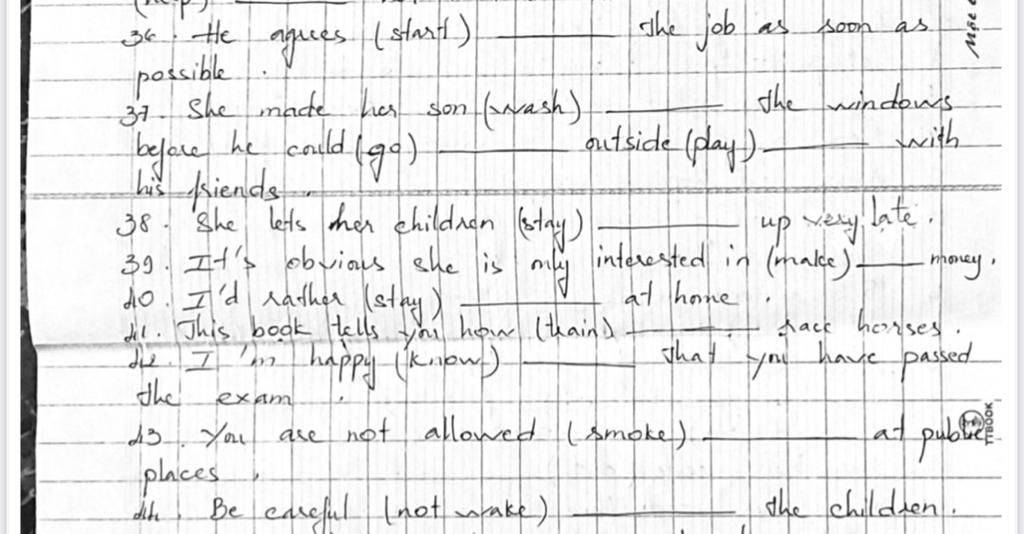 (help)
36. He agrees (start) ________ the job as soon as
possible.
37. She made her son (wash) ________ the windows
before he could (go) ________ outside (play) ________ with
his friends.
38. She lets her children (stay) ________ up very late.
39. It's obvious she is only interested in (make) ____ money.
40. I'd rather (stay) ________ at home.
41. This book tells you how (train) ________ race horses.
42. I'm happy (know) ________ that you have passed
the exam.
43. You are not allowed (smoke) ________ at public
places.
44. Be careful (not wake) ________ the children.